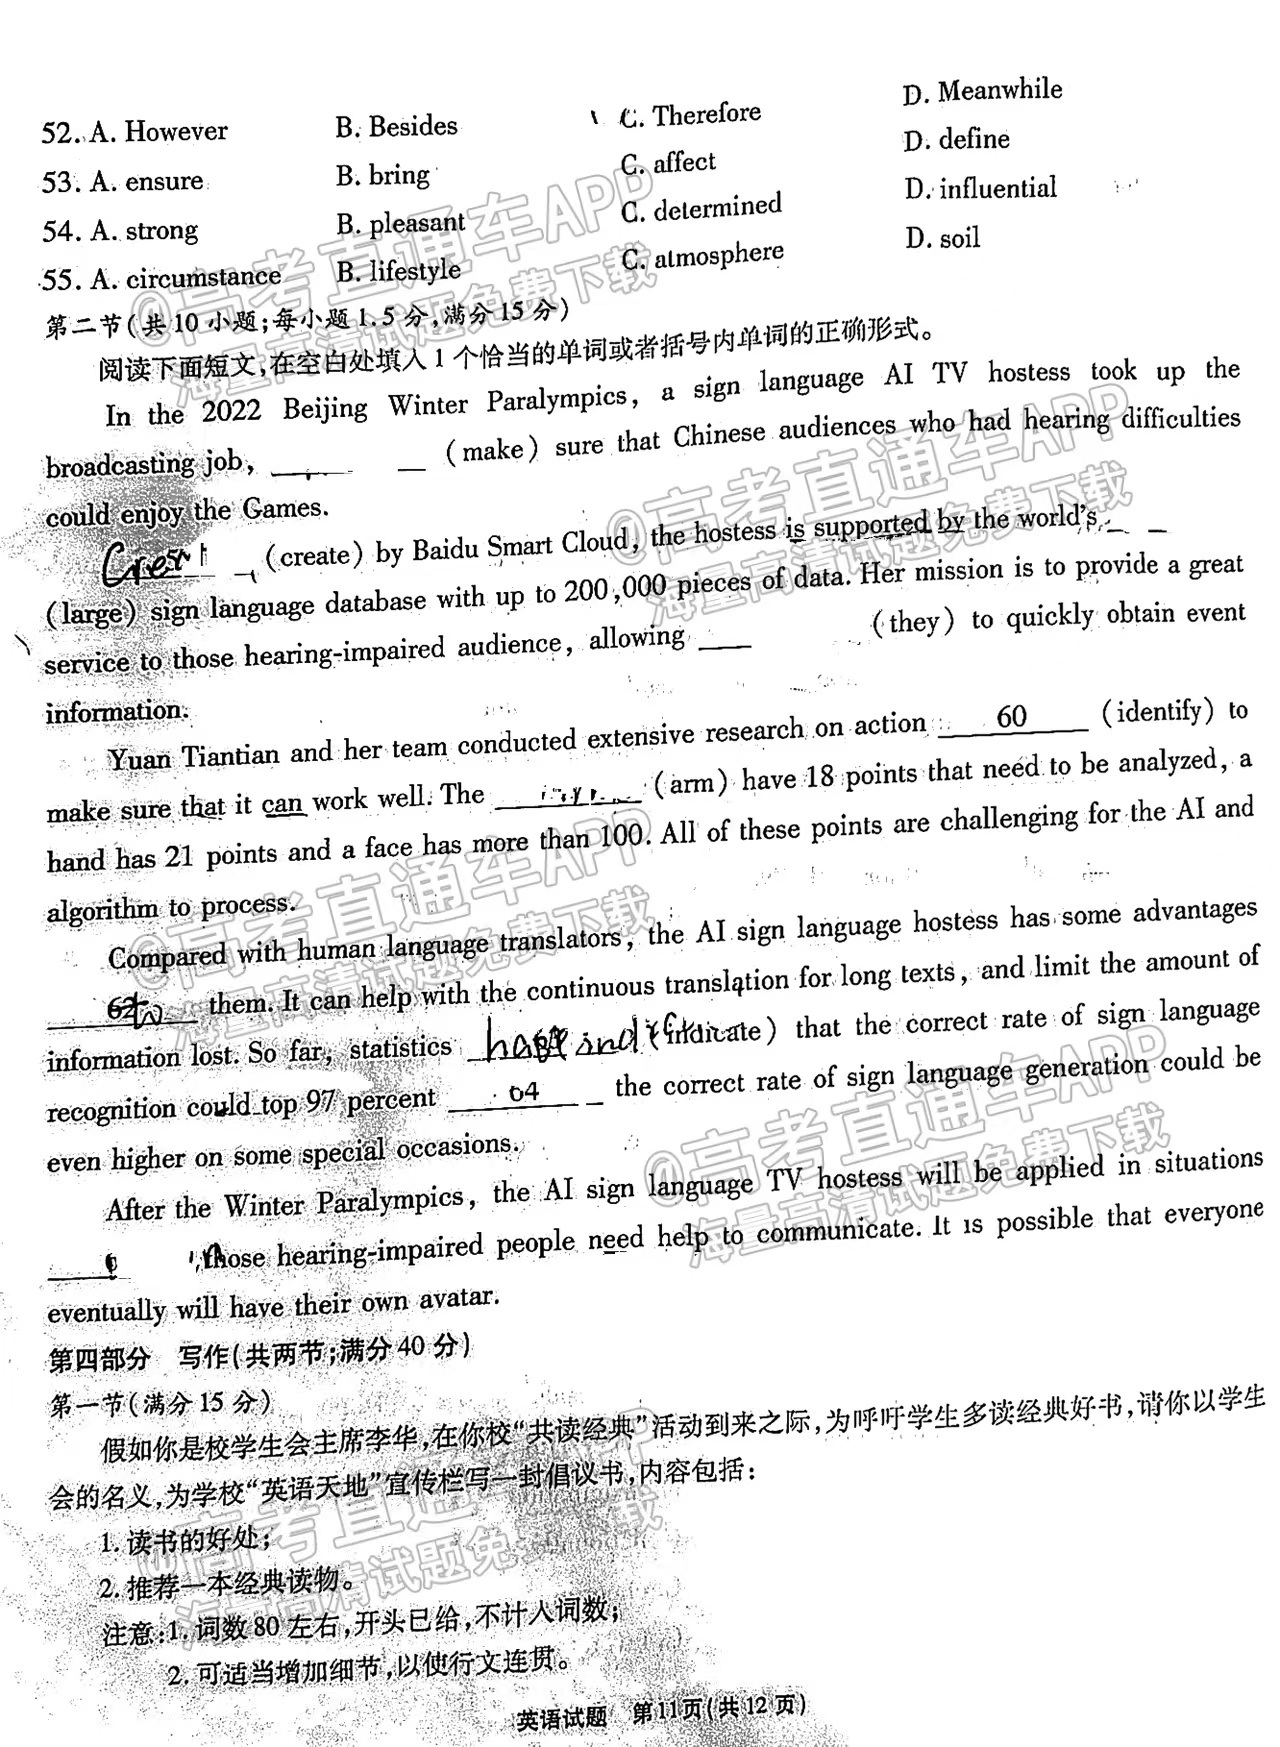 52. A. However B. Besides C. Therefore D. Meanwhile
53. A. ensure B. bring C. affect D. define
54. A. strong B. pleasant C. determined D. influential
55. A. circumstance B. lifestyle C. atmosphere D. soil
第二节(共10小题;每小题1.5分,满分15分)
阅读下面短文,在空白处填入1个恰当的单词或者括号内单词的正确形式。
In the 2022 Beijing Winter Paralympics, a sign language AI TV hostess took up the
broadcasting job, ______ (make) sure that Chinese audiences who had hearing difficulties
could enjoy the Games.
______ (create) by Baidu Smart Cloud, the hostess is supported by the world's ______
(large) sign language database with up to 200,000 pieces of data. Her mission is to provide a great
service to those hearing-impaired audience, allowing ______ (they) to quickly obtain event
information.
Yuan Tiantian and her team conducted extensive research on action 60 (identify) to
make sure that it can work well. The ______ (arm) have 18 points that need to be analyzed, a
hand has 21 points and a face has more than 100. All of these points are challenging for the AI and
algorithm to process.
Compared with human language translators, the AI sign language hostess has some advantages
______ them. It can help with the continuous translation for long texts, and limit the amount of
information lost. So far, statistics ______ (indicate) that the correct rate of sign language
recognition could top 97 percent 64 the correct rate of sign language generation could be
even higher on some special occasions.
After the Winter Paralympics, the AI sign language TV hostess will be applied in situations
______ those hearing-impaired people need help to communicate. It is possible that everyone
eventually will have their own avatar.
第四部分 写作(共两节;满分40分)
第一节(满分15分)
假如你是校学生会主席李华,在你校“共读经典”活动到来之际,为呼吁学生多读经典好书,请你以学生
会的名义,为学校“英语天地”宣传栏写一封倡议书,内容包括:
1. 读书的好处;
2. 推荐一本经典读物。
注意:1. 词数80左右,开头已给,不计入词数;
2. 可适当增加细节,以使行文连贯。
英语试题 第11页(共12页)
@高考直通车APP
海量高清试题免费下载
@高考直通车APP
海量高清试题免费下载
@高考直通车APP
海量高清试题免费下载
@高考直通车APP
海量高清试题免费下载
@高考直通车APP
海量高清试题免费下载